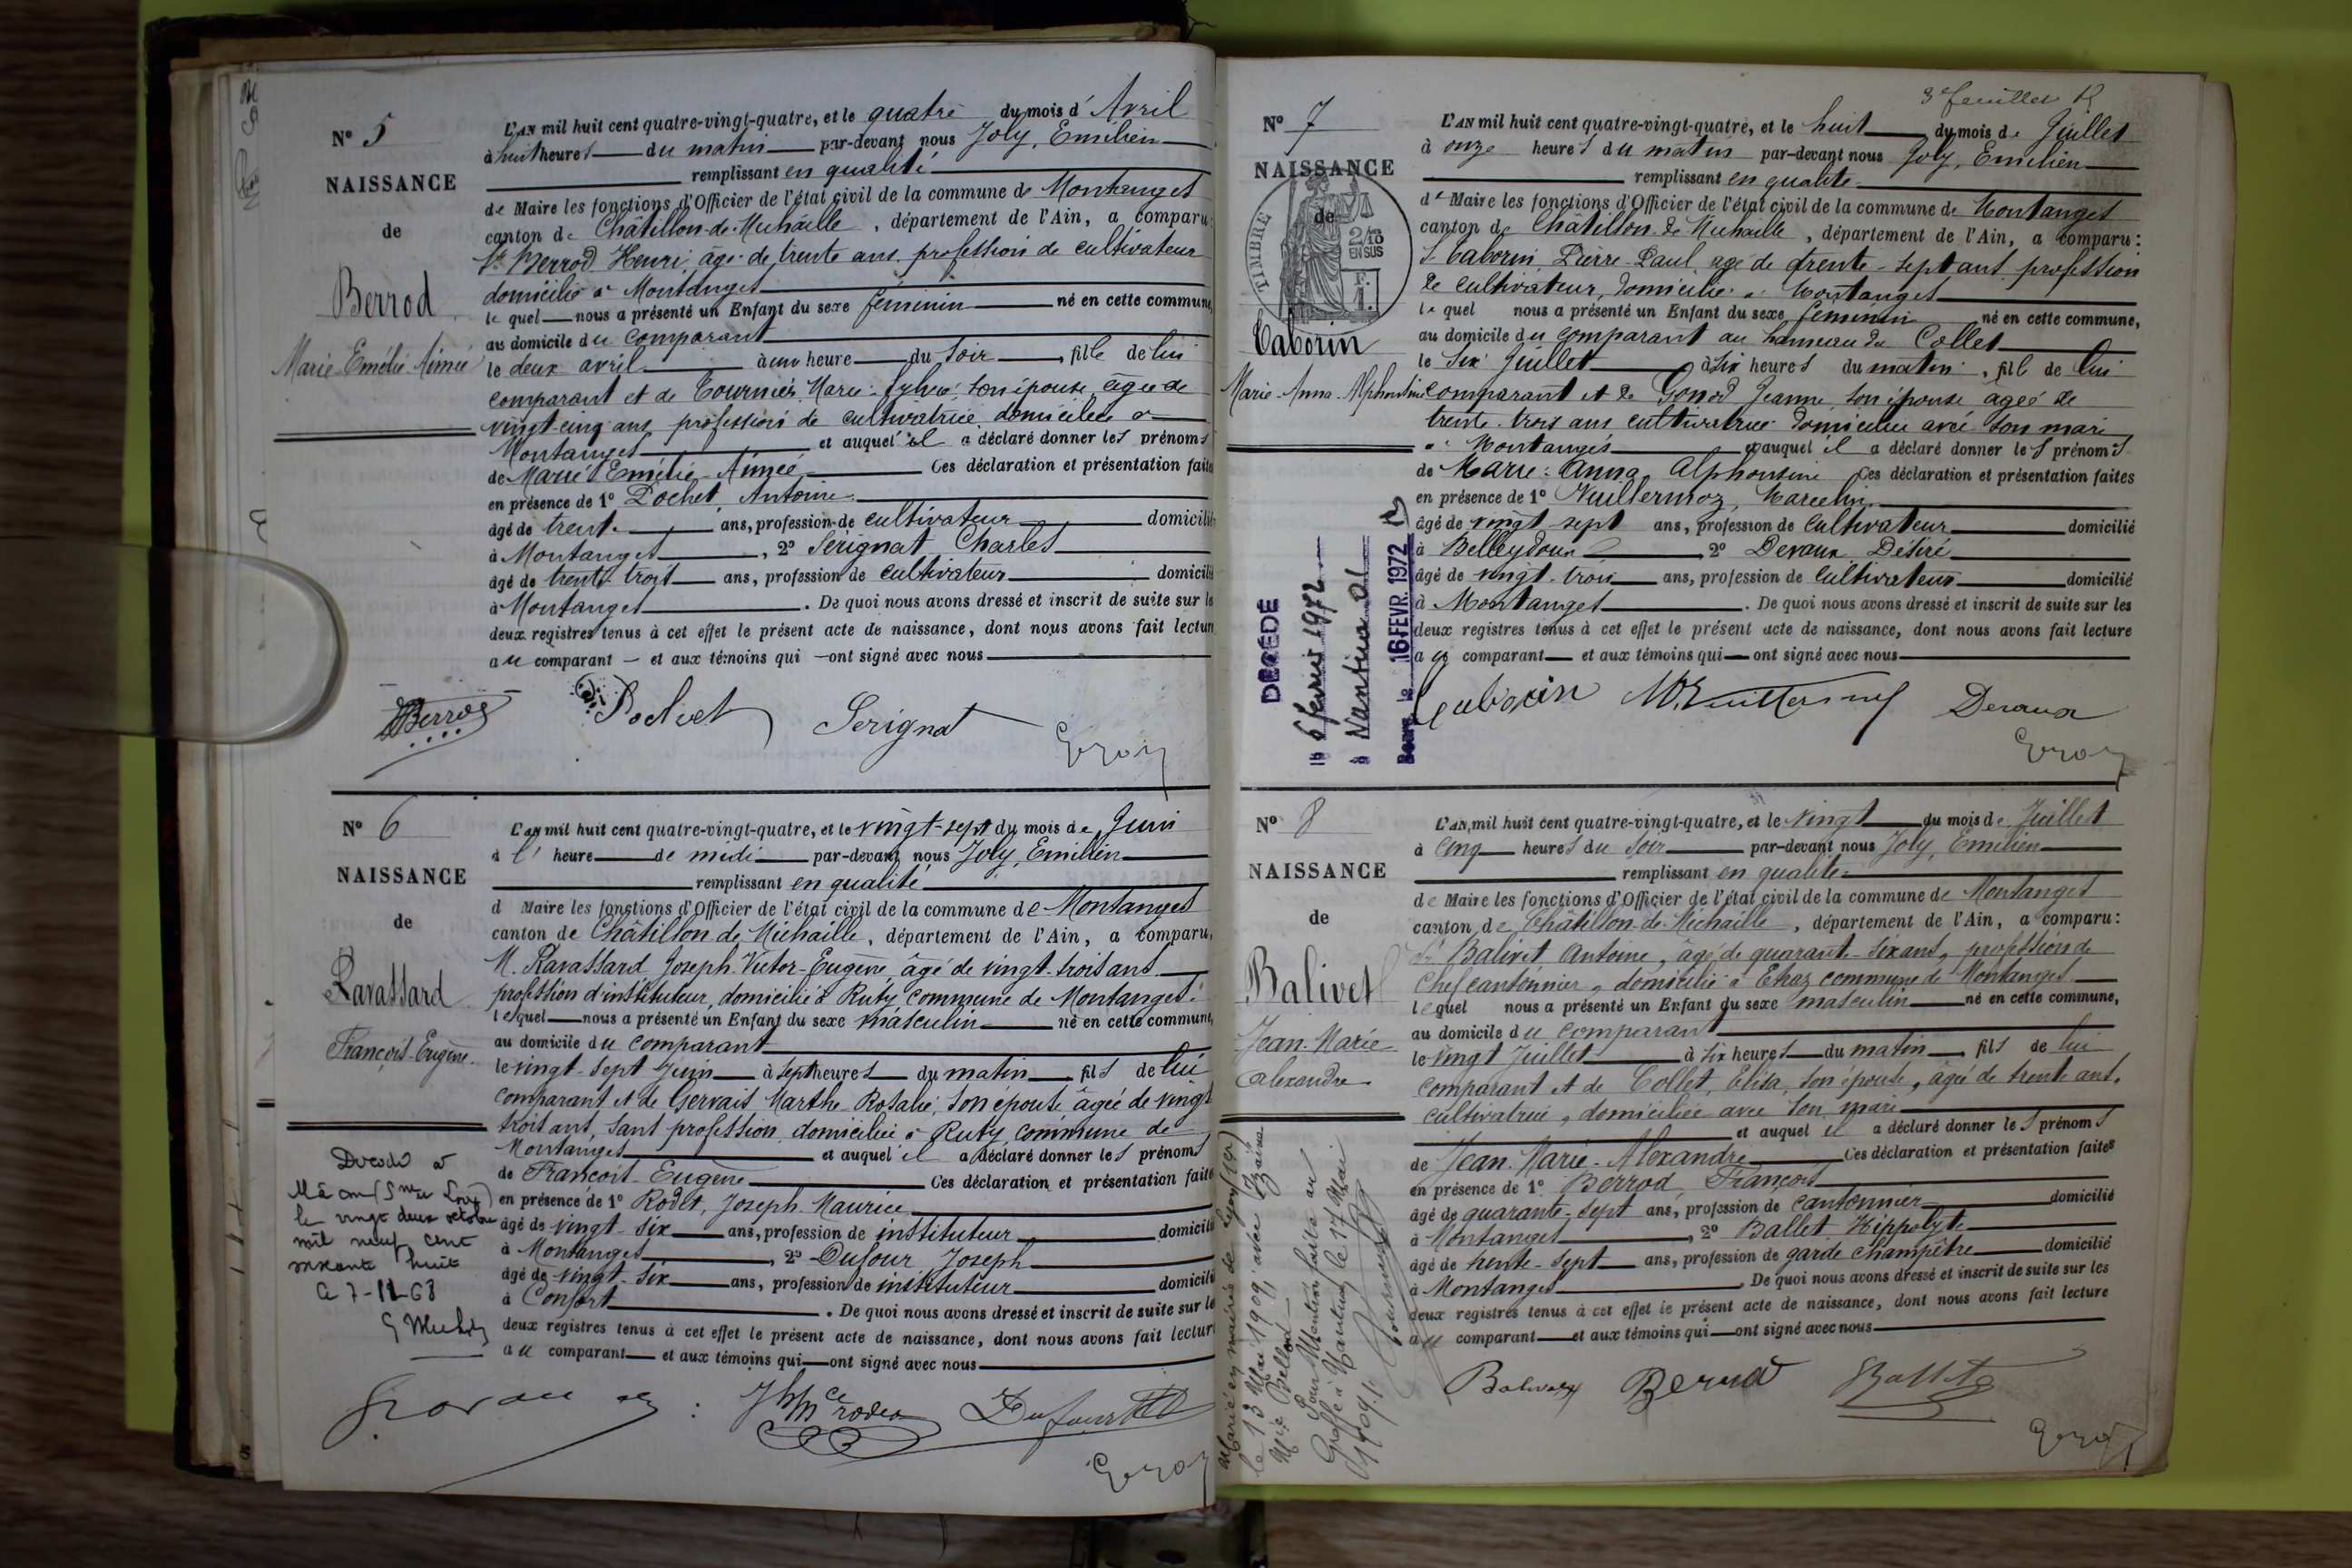 N° 5
NAISSANCE
de
Berrod
Marie-Emélie-Aimée
L'AN mil huit cent quatre-vingt-quatre, et le quatre du mois d'Avril
à huit heures du matin par-devant nous Joly, Emilien
remplissant en qualité
de Maire les fonctions d'Officier de l'état civil de la commune de Montanges
canton de Châtillon-de-Michaille, département de l'Ain, a comparu
Sr Berrod Henri, âgé de trente ans, profession de cultivateur
domicilié à Montanges
lequel nous a présenté un Enfant du sexe féminin né en cette commune,
au domicile du comparant
le deux avril à une heure du soir, fille de lui
comparant et de Tournier Marie-Sylvie, son épouse, âgée de
vingt-cinq ans, profession de cultivatrice, domiciliée à
Montanges et auquel il a déclaré donner les prénoms
de Marie Emélie-Aimée Ces déclaration et présentation faites
en présence de 1° Pochet, Antoine
âgé de trente ans, profession de cultivateur domicilié
à Montanges, 2° Sérignat Charles
âgé de trente-trois ans, profession de cultivateur domicilié
à Montanges. De quoi nous avons dressé et inscrit de suite sur les
deux registres tenus à cet effet le présent acte de naissance, dont nous avons fait lecture
au comparant et aux témoins qui ont signé avec nous
HBerrod Pochet Serignat
N° 6
NAISSANCE
de
Ravassard
François-Eugène
Décédé à
Mâcon (Sne et Loire)
le vingt deux octobre
mil neuf cent
soixante huit
le 7-11-68
L'AN mil huit cent quatre-vingt-quatre, et le vingt-sept du mois de Juin
à l'heure de midi par-devant nous Joly, Emilien
remplissant en qualité
d Maire les fonctions d'Officier de l'état civil de la commune de Montanges
canton de Châtillon de Michaille, département de l'Ain, a comparu,
M. Ravassard Joseph-Victor-Eugène âgé de vingt-trois ans
profession d'instituteur, domicilié à Ruty commune de Montanges
lequel nous a présenté un Enfant du sexe masculin né en cette commune,
au domicile du comparant
le vingt-sept Juin à sept heures du matin, fils de lui
comparant et de Gervais Marthe-Rosalie, son épouse âgée de vingt
trois ans, sans profession, domiciliée à Ruty, commune de
Montanges et auquel il a déclaré donner les prénoms
de François-Eugène Ces déclaration et présentation faites
en présence de 1° Rodet, Joseph-Maurice
âgé de vingt-six ans, profession de instituteur domicilié
à Montanges, 2° Dufour Joseph
âgé de vingt-six ans, profession de instituteur domicilié
à Confort. De quoi nous avons dressé et inscrit de suite sur les
deux registres tenus à cet effet le présent acte de naissance, dont nous avons fait lecture
au comparant et aux témoins qui ont signé avec nous
Dufour
3e feuillet
N° 7
NAISSANCE
de
TIMBRE
2/10 EN SUS
F. 1.
Taborin
Marie-Anna-Alphonsine
DÉCÉDÉ
le 6 février 1972
à Nantua 01
16 FEVR. 1972
L'AN mil huit cent quatre-vingt-quatre, et le huit du mois de Juillet
à onze heures du matin par-devant nous Joly, Emilien
remplissant en qualité
de Maire les fonctions d'Officier de l'état civil de la commune de Montanges
canton de Châtillon de Michaille, département de l'Ain, a comparu:
Sr Taborin Pierre-Paul, âgé de trente-sept ans, profession
de cultivateur, domicilié à Montanges
lequel nous a présenté un Enfant du sexe féminin né en cette commune,
au domicile du comparant au hameau du Collet
le six Juillet à six heures du matin, fille de lui
comparant et de Gonod Jeanne, son épouse âgée de
trente-trois ans cultivatrice domiciliée avec son mari
à Montanges et auquel il a déclaré donner les prénoms
de Marie-Anna-Alphonsine Ces déclaration et présentation faites
en présence de 1° Vuillermoz, Marcelin
âgé de vingt sept ans, profession de cultivateur domicilié
à Belleydoux, 2° Devaux Désiré
âgé de vingt-trois ans, profession de cultivateur domicilié
à Montanges. De quoi nous avons dressé et inscrit de suite sur les
deux registres tenus à cet effet le présent acte de naissance, dont nous avons fait lecture
au comparant et aux témoins qui ont signé avec nous
Taborin M. Vuillermoz Devaux
N° 8
NAISSANCE
de
Balivet
Jean-Marie
Alexandre
Marié en mairie de Lyon
le 13 Mai 1909, avec
Pour Mention faite au
Greffe à Nantua, le 17 Mai
1909.
L'AN mil huit cent quatre-vingt-quatre, et le vingt du mois de Juillet
à cinq heures du soir par-devant nous Joly, Emilien
remplissant en qualité
de Maire les fonctions d'Officier de l'état civil de la commune de Montanges
canton de Châtillon-de-Michaille, département de l'Ain, a comparu:
Sr Balivet Antoine, âgé de quarante-six ans, profession de
chef cantonnier, domicilié à Etraz commune de Montanges
lequel nous a présenté un Enfant du sexe masculin né en cette commune,
au domicile du comparant
le vingt Juillet à six heures du matin, fils de lui
comparant et de Tollet, Elisa, son épouse, âgée de trente ans,
cultivatrice, domiciliée avec son mari
et auquel il a déclaré donner les prénoms
de Jean-Marie-Alexandre Ces déclaration et présentation faites
en présence de 1° Berrod François
âgé de quarante-sept ans, profession de cantonnier domicilié
à Montanges, 2° Ballet Hippolyte
âgé de trente-sept ans, profession de garde champêtre domicilié
à Montanges. De quoi nous avons dressé et inscrit de suite sur les
deux registres tenus à cet effet le présent acte de naissance, dont nous avons fait lecture
au comparant et aux témoins qui ont signé avec nous
Balivet Berrod Ballet